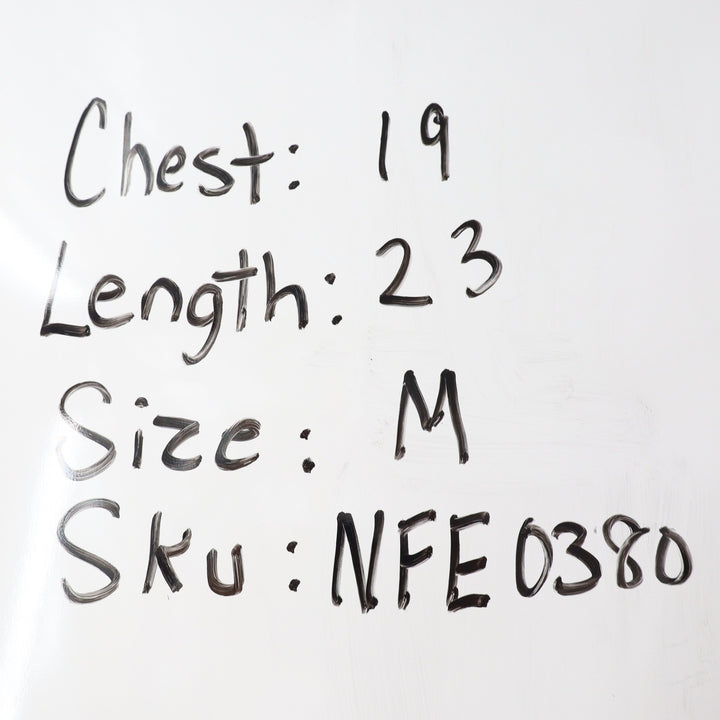 Chest: 19
Length: 23
Size: M
Sku: NFE0380